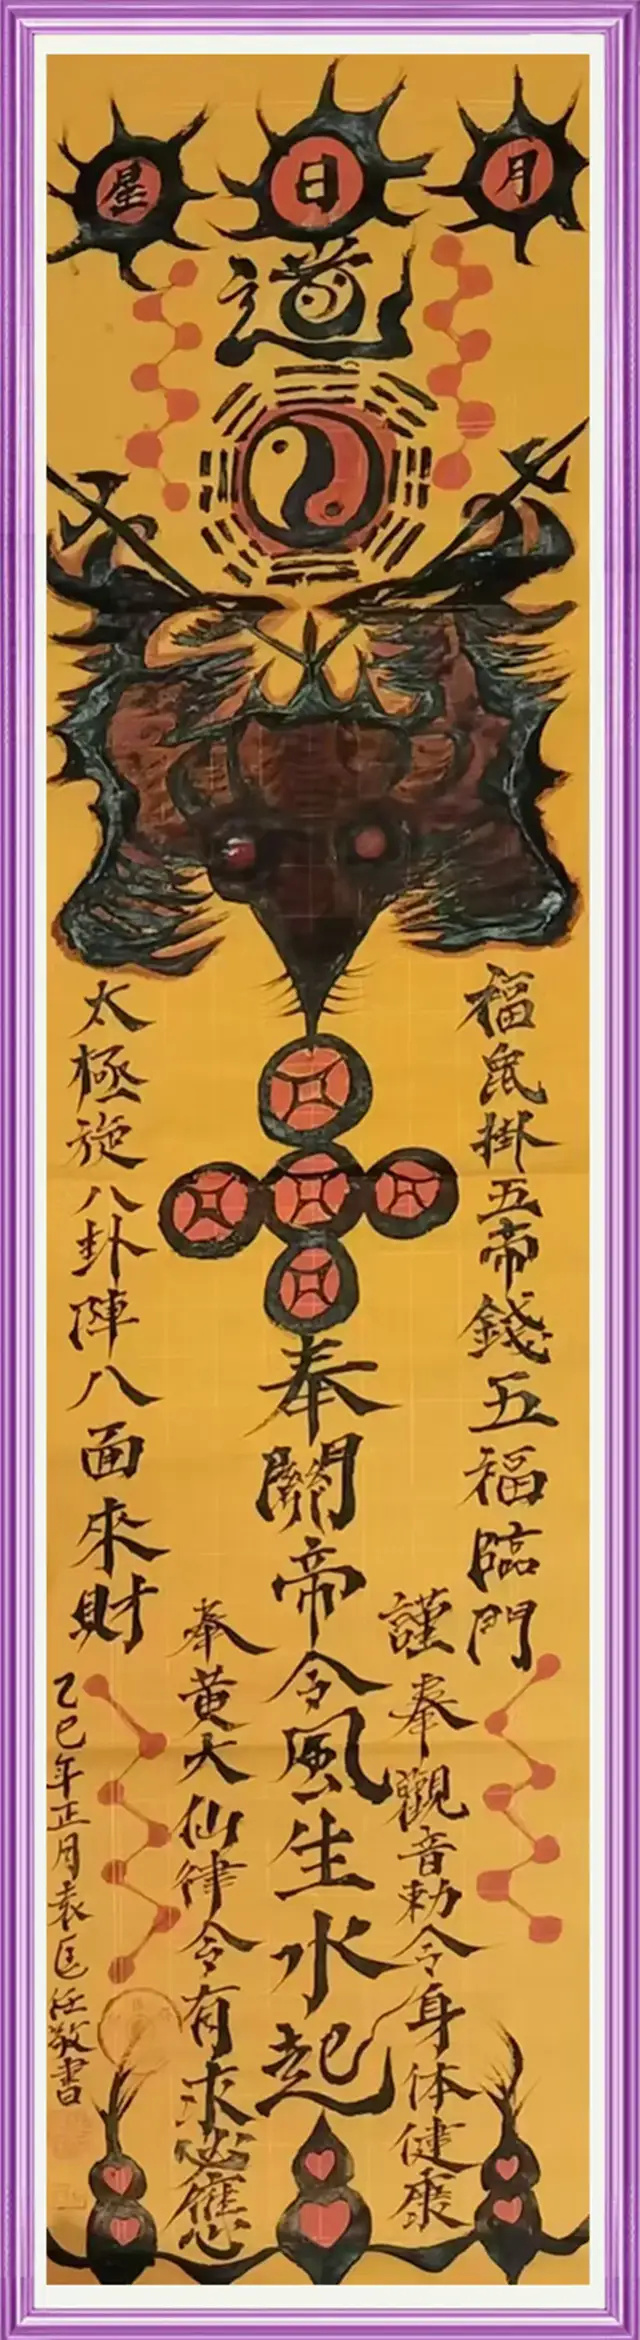 星 日 月
道
福鼠掛五帝錢五福臨門
太極施八卦陣八面來財
奉關帝令風生水起
謹奉觀音勅令身体健康
奉黄大仙律令有求必應
乙巳年正月袁匡任敬書